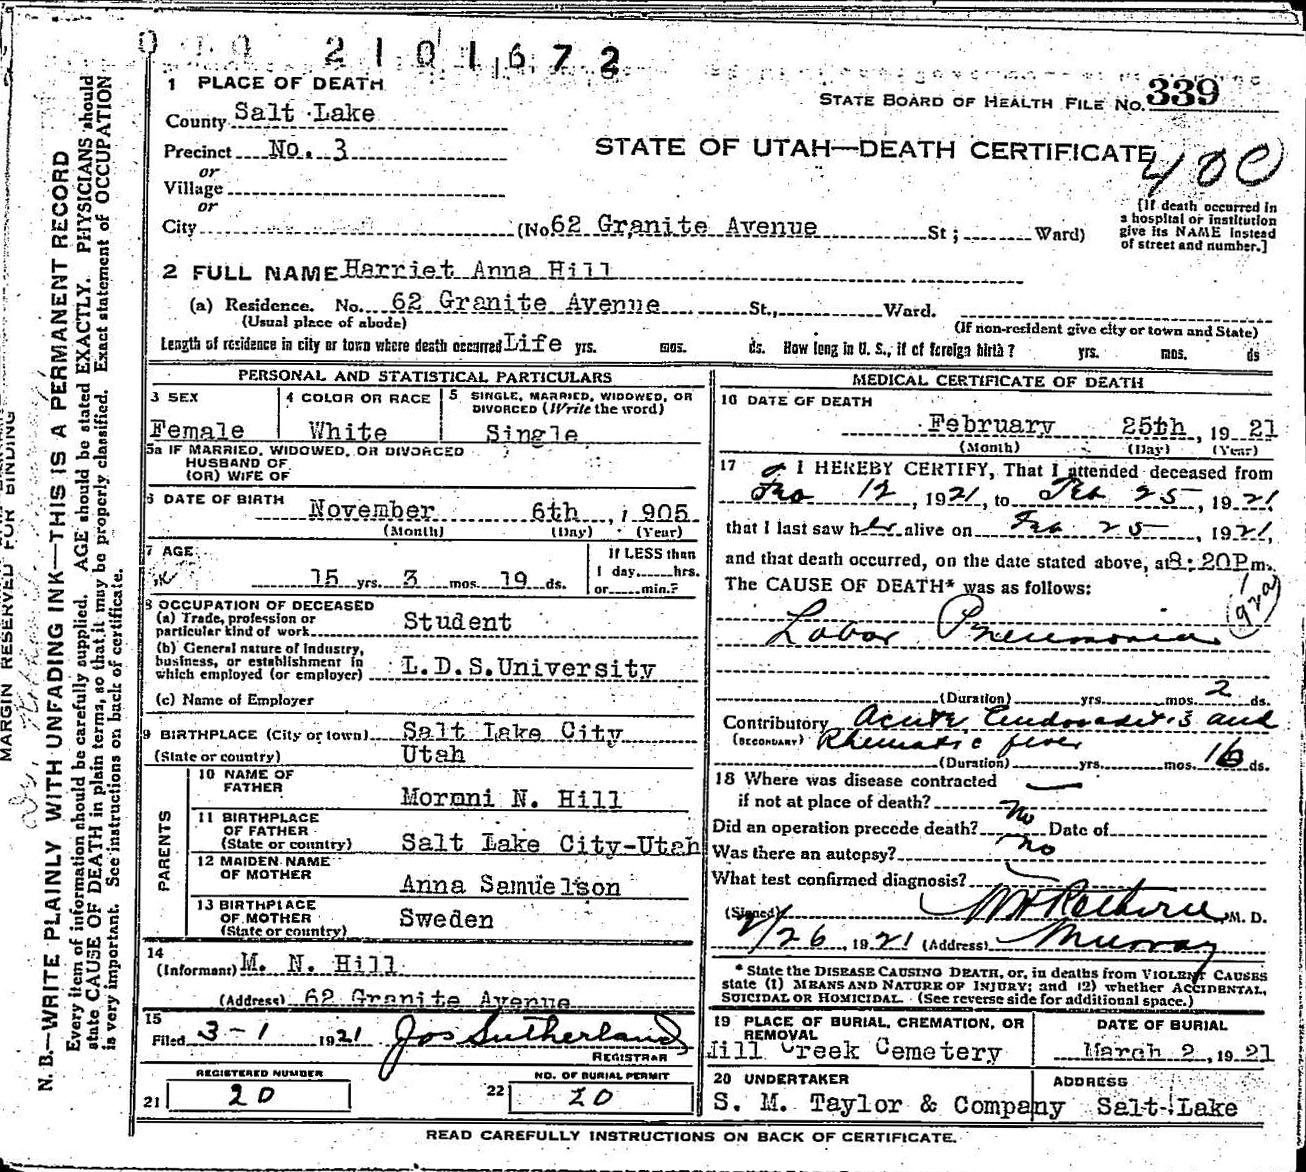 2101672
1 PLACE OF DEATH
STATE BOARD OF HEALTH FILE No. 339
County Salt Lake
Precinct No. 3
STATE OF UTAH—DEATH CERTIFICATE
400
or
Village
or
City (No 62 Granite Avenue St; Ward)
[If death occurred in a hospital or institution give its NAME instead of street and number.]
2 FULL NAME Harriet Anna Hill
(a) Residence. No. 62 Granite Avenue St., Ward.
(Usual place of abode) (If non-resident give city or town and State)
Length of residence in city or town where death occurred Life yrs. mos. ds. How long in U. S., if of foreign birth? yrs. mos. ds
PERSONAL AND STATISTICAL PARTICULARS
3 SEX
Female
4 COLOR OR RACE
White
5 SINGLE, MARRIED, WIDOWED, OR DIVORCED (Write the word)
Single
5a IF MARRIED, WIDOWED, OR DIVORCED
HUSBAND OF
(OR) WIFE OF
6 DATE OF BIRTH
November 6th, 1905
(Month) (Day) (Year)
7 AGE
15 yrs. 3 mos. 19 ds.
If LESS than
1 day, hrs.
or min.?
8 OCCUPATION OF DECEASED
(a) Trade, profession or
particular kind of work Student
(b) General nature of industry,
business, or establishment in
which employed (or employer) L.D.S.University
(c) Name of Employer
9 BIRTHPLACE (City or town) Salt Lake City
(State or country) Utah
PARENTS
10 NAME OF
FATHER
Moroni N. Hill
11 BIRTHPLACE
OF FATHER
(State or country) Salt Lake City-Utah
12 MAIDEN NAME
OF MOTHER
Anna Samuelson
13 BIRTHPLACE
OF MOTHER
(State or country) Sweden
14
(Informant) M. N. Hill
(Address) 62 Granite Avenue
15
Filed 3-1 1921 Jos Sutherland
REGISTRAR
REGISTERED NUMBER
21 20
NO. OF BURIAL PERMIT
22 20
MEDICAL CERTIFICATE OF DEATH
16 DATE OF DEATH
February 25th, 1921
(Month) (Day) (Year)
17 I HEREBY CERTIFY, That I attended deceased from
Feb 12, 1921, to Feb 25, 1921
that I last saw her alive on Feb 25, 1921,
and that death occurred, on the date stated above, at 8:20P m.
The CAUSE OF DEATH* was as follows:
Lobar Pneumonia
(Duration) yrs. mos. 2 ds.
Contributory Acute Endocarditis and
(SECONDARY) Rhematic fever
(Duration) yrs. mos. 16 ds.
18 Where was disease contracted
if not at place of death?
Did an operation precede death? No Date of
Was there an autopsy? No
What test confirmed diagnosis?
(Signed) M. D.
2/26, 1921 (Address) Murray
* State the DISEASE CAUSING DEATH, or, in deaths from VIOLENT CAUSES
state (1) MEANS AND NATURE OF INJURY; and (2) whether ACCIDENTAL,
SUICIDAL OR HOMICIDAL. (See reverse side for additional space.)
19 PLACE OF BURIAL, CREMATION, OR
REMOVAL
Mill Creek Cemetery
DATE OF BURIAL
March 2, 1921
20 UNDERTAKER
S. M. Taylor & Company
ADDRESS
Salt Lake
READ CAREFULLY INSTRUCTIONS ON BACK OF CERTIFICATE.
MARGIN RESERVED FOR BINDING
N. B.—WRITE PLAINLY WITH UNFADING INK—THIS IS A PERMANENT RECORD
Every item of information should be carefully supplied. AGE should be stated EXACTLY. PHYSICIANS should
state CAUSE OF DEATH in plain terms, so that it may be properly classified. Exact statement of OCCUPATION
is very important. See instructions on back of certificate.